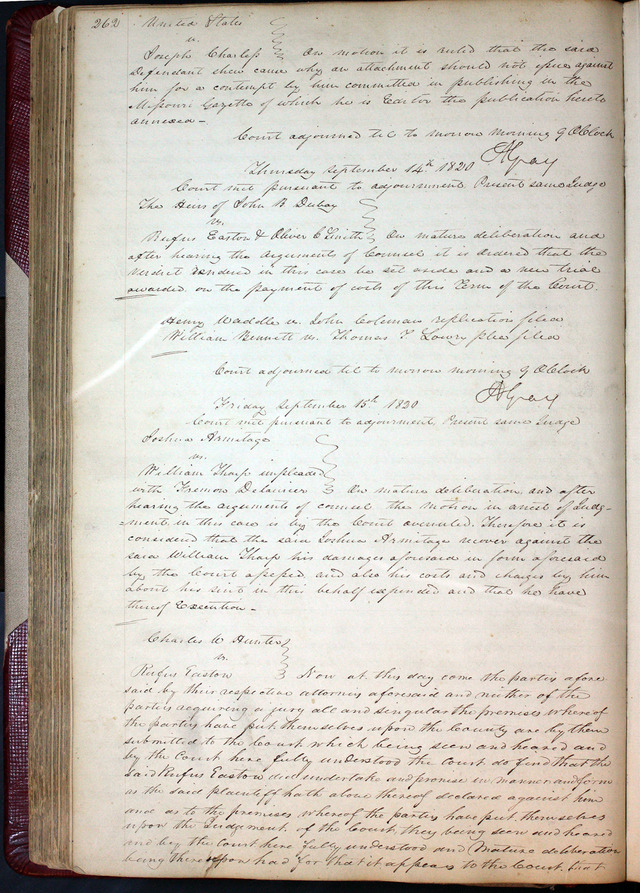 262 United States
vs.
Joseph Charless On motion it is ruled that the said
Defendant shew cause why an attachment should not issue against
him for a contempt by him committed in publishing in the
Missouri Gazette of which he is Editor the publication hereto
annexed -
Court adjourned til to morrow morning 9 OClock
AGray
Thursday September 14th 1820
Court met pursuant to adjournment Present same Judge
The Heirs of John B Dubay
vs.
Rufus Easton & Oliver C Smith On mature deliberation and
after hearing the argument of Counsel it is ordered that the
verdict rendered in this case be set aside and a new trial
awarded on the payment of costs of this Term of the Court
Henry Waddle vs. John Coleman replication filed
William Bennitt vs. Thomas T. Lowry plea filed
Court adjourned til to morrow morning 9 OClock
AGray
Friday September 15th 1820
Court met pursuant to adjournment Present same Judge
Joshua Armitage
vs.
William Tharp impleaded
with Fremon Delaurier On mature deliberation and after
hearing the arguments of counsel the motion in arrest of Judg-
=ment in this case is by the Court overruled. Therefore it is
considered that the said Joshua Armitage recover against the
said William Tharp his damages aforesaid in form aforesaid
by the Court assessed, and also his costs and charges by him
about his suit in this behalf expended and that he have
thereof Execution -
Charles W Hunter
vs.
Rufus Easton Now at this day come the parties afore
said by their respective attornies aforesaid and neither of the
parties requiring a jury all and singular the premises whereof
the parties have put themselves upon the County are by them
submitted to the Court which being seen and heared and
by the Court here fully understood the Court do find that the
said Rufus Easton did undertake and promise in manner and form
as the said plaintiff hath above thereof declared against him
and as to the premises whereof the parties have put themselves
upon the Judgment of the Court, they being seen and heared
and by the Court here fully understood and mature deliberation
being thereupon had for that it appears to the Court, that